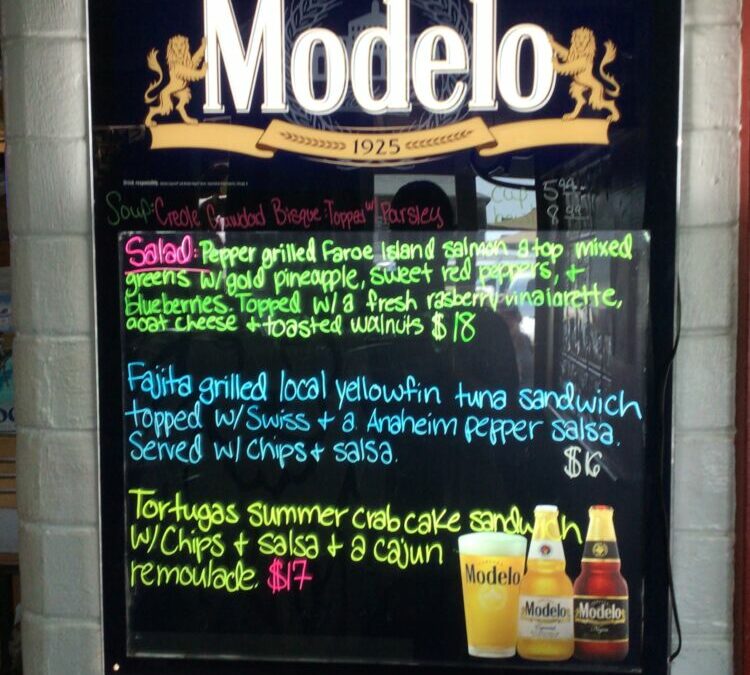 Modelo
1925
Soup: Creole Crawdad Bisque: Topped w/ Parsley
cup 5.99
8.99
Salad: Pepper grilled Faroe Island salmon atop mixed
greens w/ gold pineapple, sweet red peppers, +
blueberries. Topped w/ a fresh rasberry vinaiarette,
goat cheese + toasted walnuts $18
Fajita grilled local yellowfin tuna sandwich
topped w/ Swiss + a Anaheim pepper salsa.
Served w/ Chips + salsa.
$16
Tortugas summer crab cake sandwich
w/ Chips + salsa + a cajun
remoulade. $17
Modelo
Modelo
Modelo